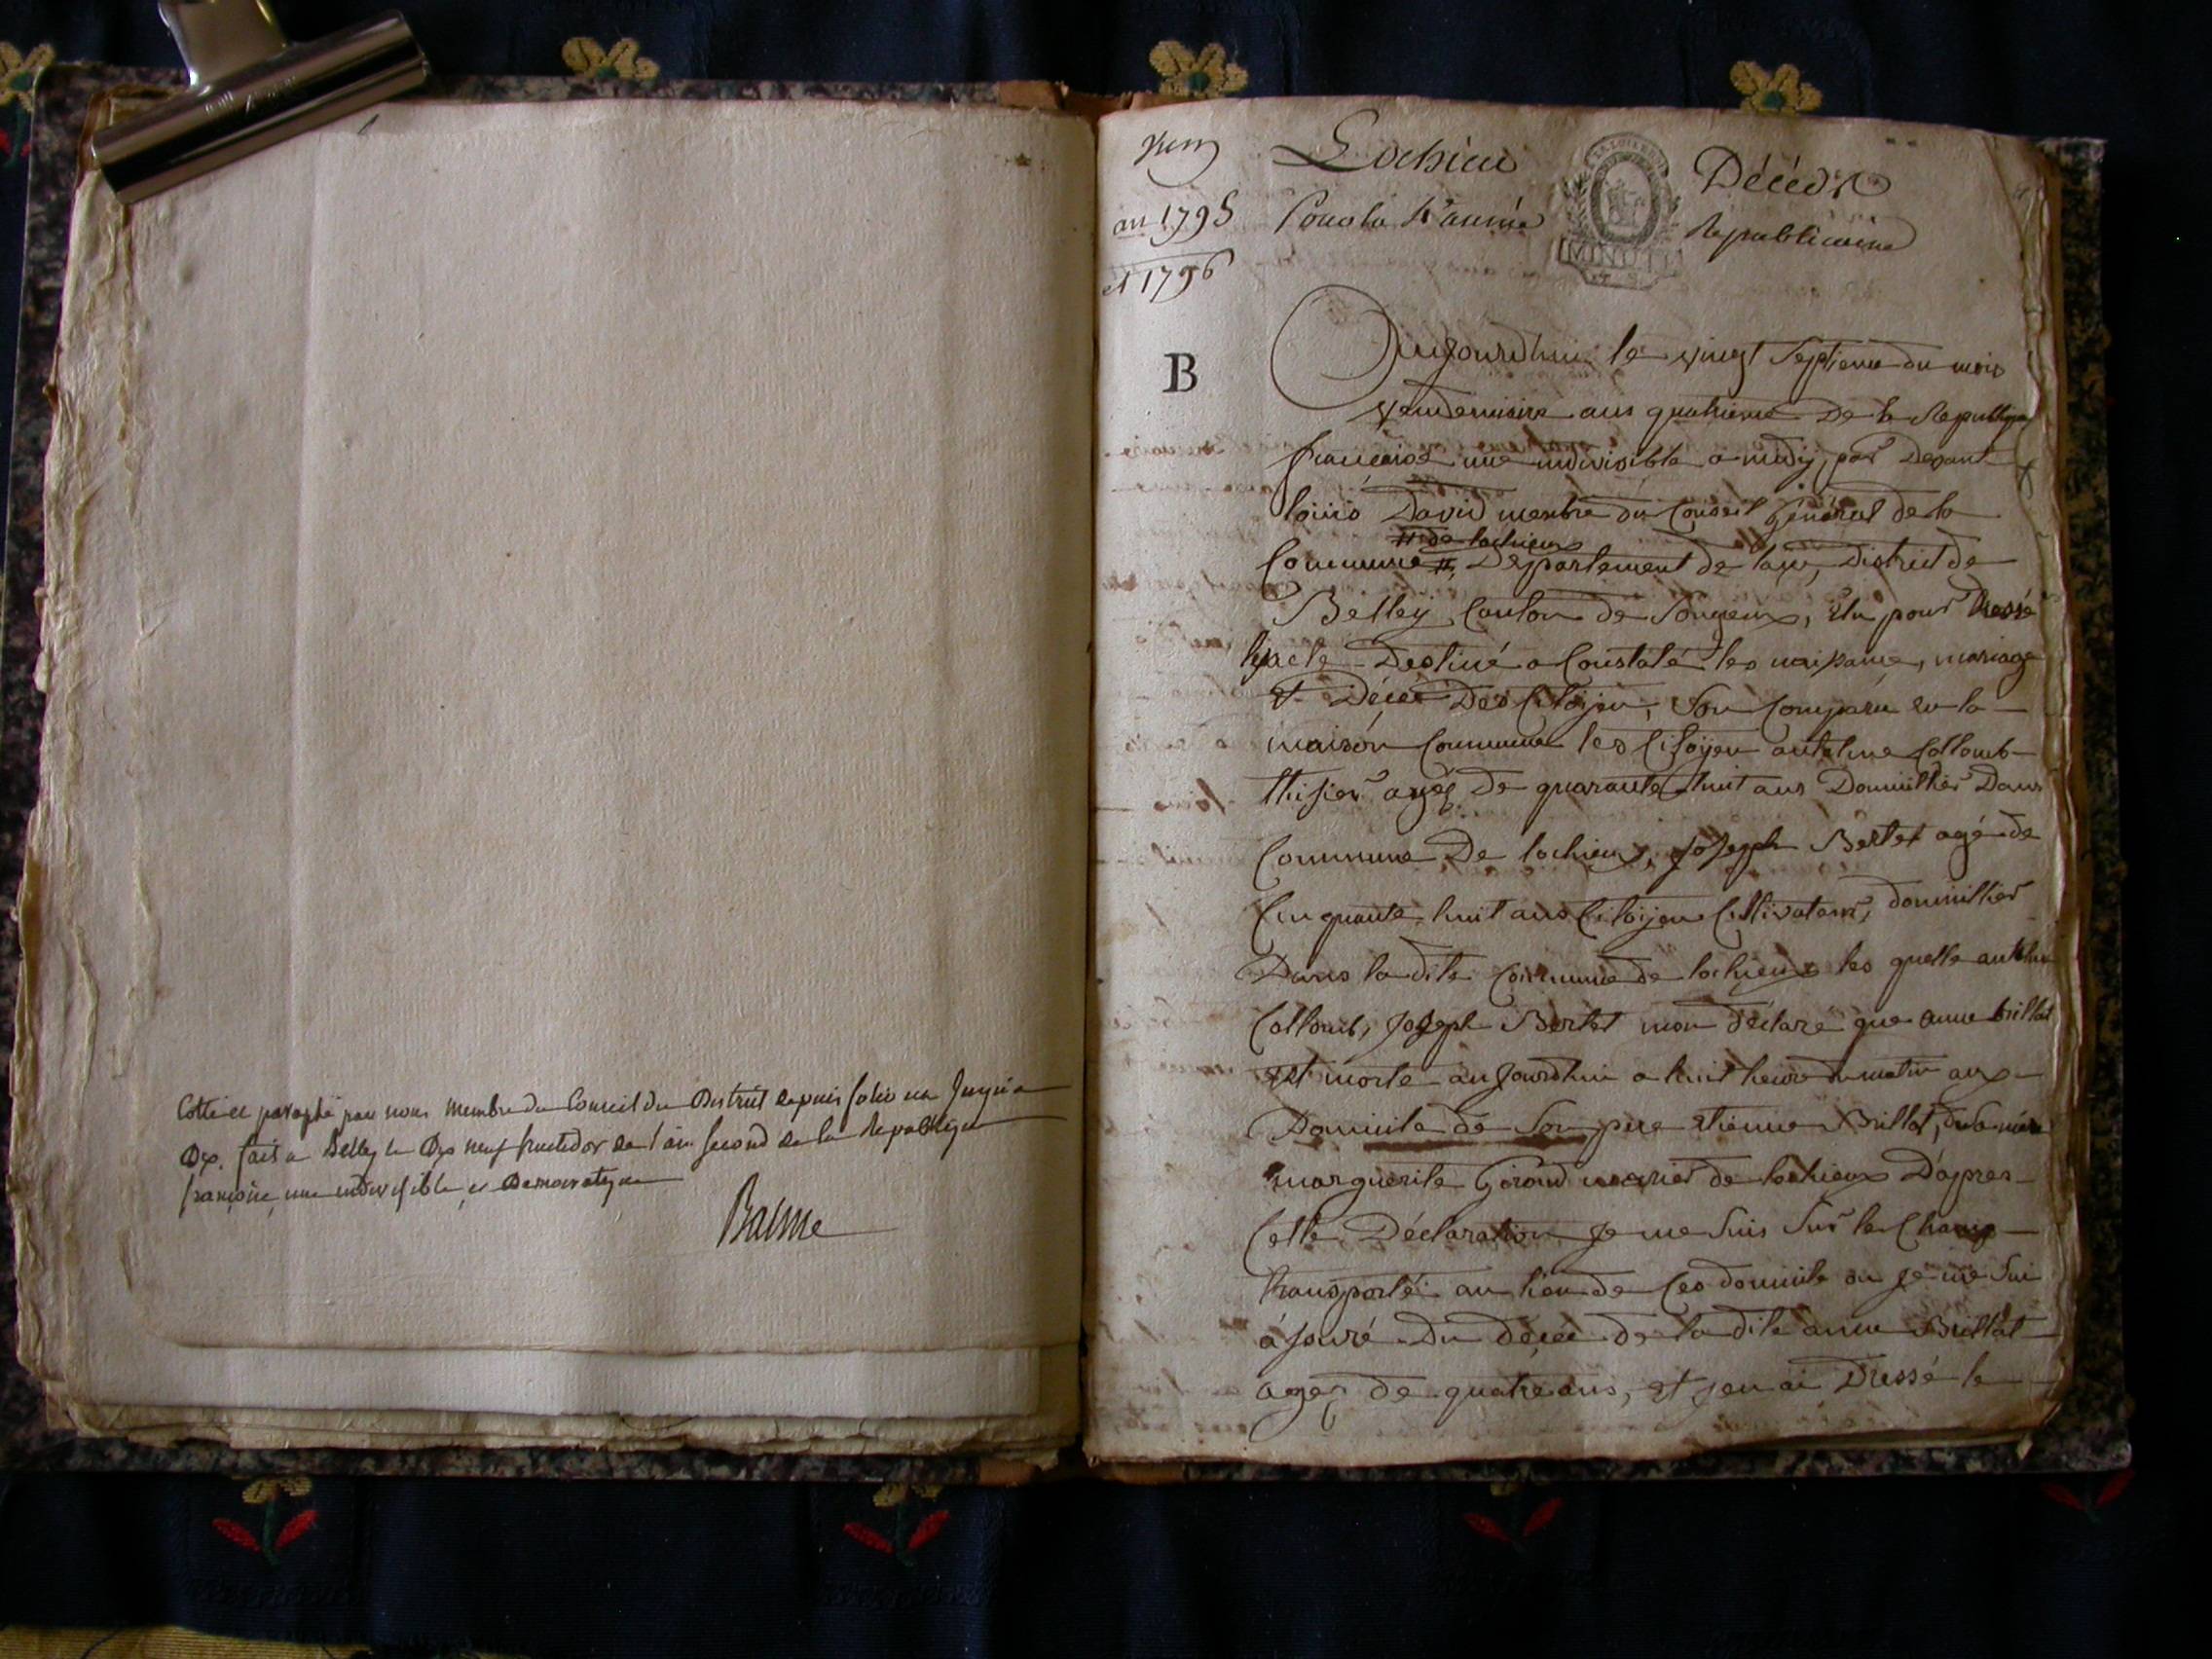 Cotté et paraphé par nous membre du Conseil du District depuis folio un jusqu'a
Dix. fait a Belley le Dix neuf fructidor de l'an second de la Republique
françoise, une indivisible et Democratique
Balme
an 1795
et 1796
B
Lochieu
Décéds
Pour la 4e année
Republicaine
MINUTE
Aujourdhui le vingt septieme du mois
vendemiaire ans quatrieme De la Republique
francaise une indivisible a midy, par Devant
louis David membre du Conseil Général de la
# de lochieux
Commune #, Departement de lain, District de
Belley, Canton de Songieux, Elu pour Dressé
lesacte Destiné a Constaté les naissance, mariage
et Décés Des Citoijen, Son Comparu en la
maison Commune les Citoijen antelme Collomb
thisier agés De quarante huit ans Domicilliér Dans
Commune De lochieux, Joseph Bertet agé de
Cinquante huit ans Citoijen Cultivateur, domicillier
Dans la dite Commune de lochieux les quelle antelme
Collomb, Joseph Bertet mon déclaré que anne brillat
Est morte aujourdhui a huit heure du matin aux
Domicile de Son pere etienne Brillat, de la mére
marguerite Girond mariés de lochieux D'apres
Cette Déclaration Je me Suis Sur le Champ
transporté au lieu de Ces domicile ou Je me Sui
assuré Du décée de la dite anne Brillat
agés de quatre ans, et Jen ai Dressé le